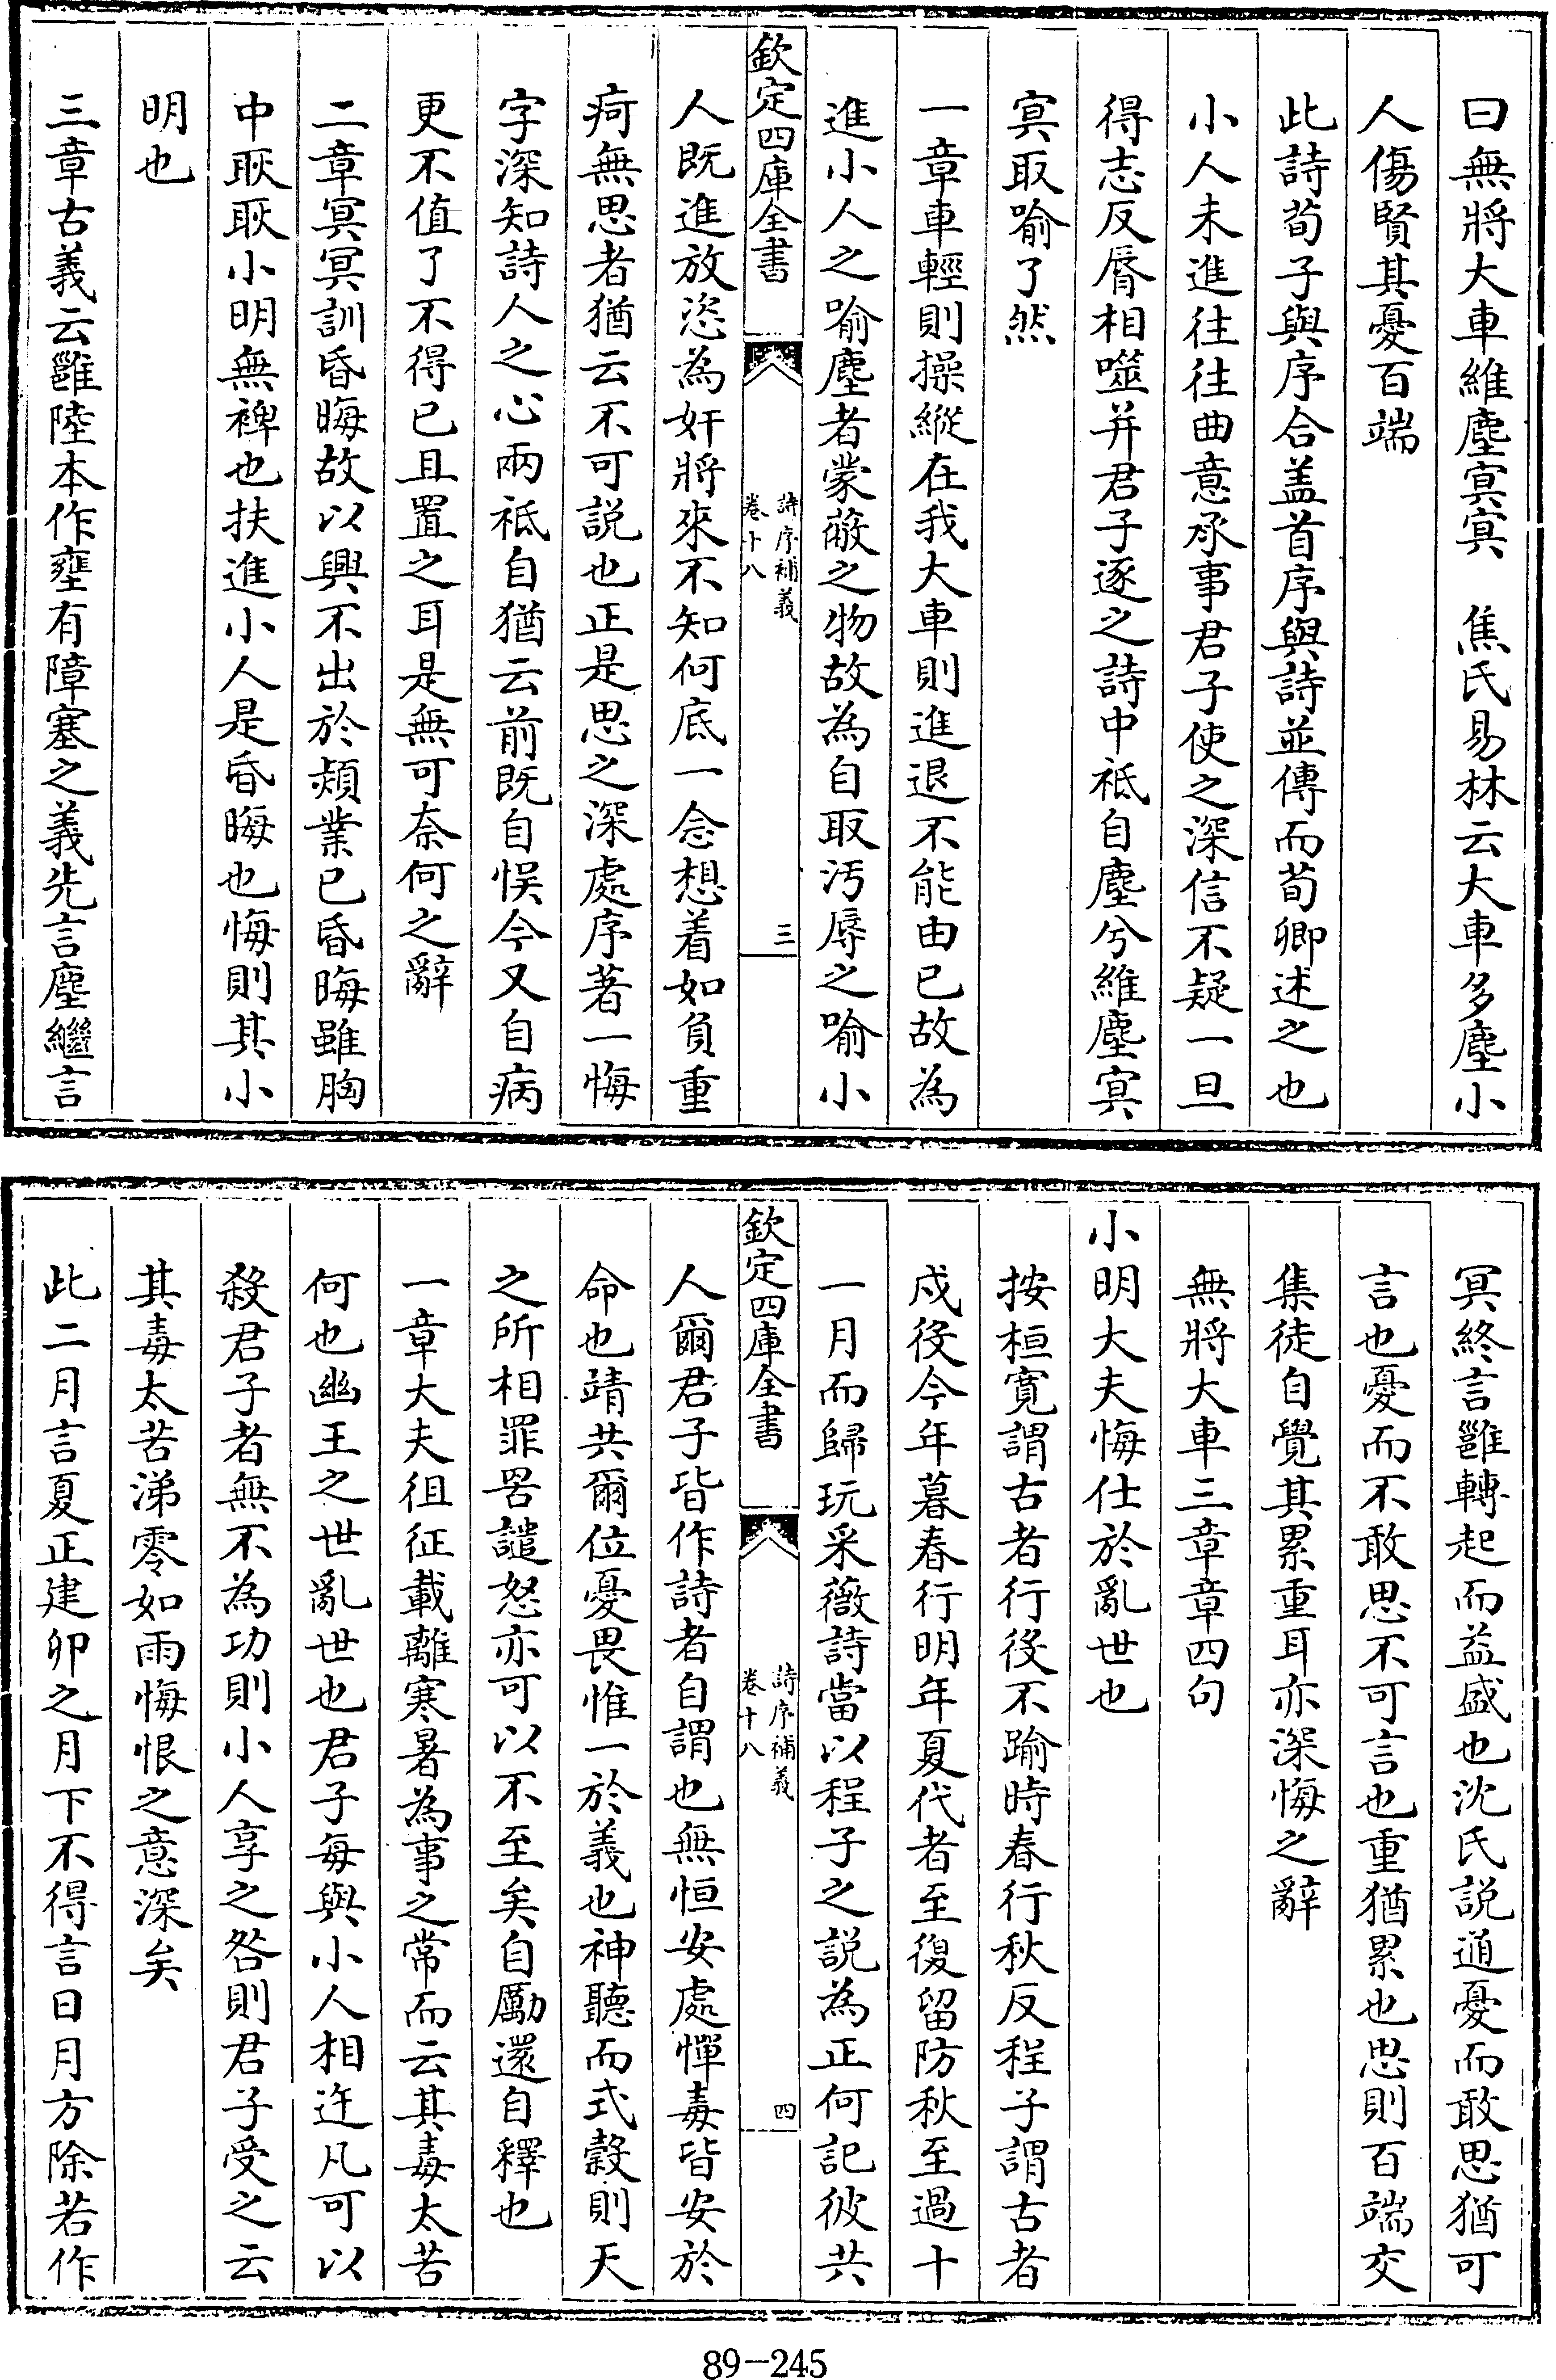 曰無將大車維塵冥冥　焦氏易林云大車多塵小
人傷賢其憂百端
此詩荀子與序合盖首序與詩並傳而荀卿述之也
小人未進往往曲意承事君子使之深信不疑一旦
得志反脣相噬并君子逐之詩中祗自塵兮維塵冥
冥取喻了然
一章車輕則操縱在我大車則進退不能由已故為
進小人之喻塵者蒙蔽之物故為自取汚辱之喻小
欽定四庫全書
詩序補義
卷十八
三
人既進放恣為奸將來不知何底一念想着如負重
疴無思者猶云不可説也正是思之深處序著一悔
字深知詩人之心兩祗自猶云前既自悮今又自病
更不值了不得已且置之耳是無可奈何之辭
二章冥冥訓昏晦故以興不出於熲業已昏晦雖胸
中耿耿小明無裨也扶進小人是昏晦也悔則其小
明也
三章古義云雝陸本作壅有障塞之義先言塵繼言
冥終言雝轉起而益盛也沈氏説通憂而敢思猶可
言也憂而不敢思不可言也重猶累也思則百端交
集徒自覺其累重耳亦深悔之辭
無將大車三章章四句
小明大夫悔仕於亂世也
按桓寛謂古者行役不踰時春行秋反程子謂古者
戍役今年暮春行明年夏代者至復留防秋至過十
一月而歸玩采薇詩當以程子之説為正何記彼共
欽定四庫全書
詩序補義
卷十八
四
人爾君子皆作詩者自謂也無恒安處憚毒皆安於
命也靖共爾位憂畏惟一於義也神聽而式榖則天
之所相罪罟譴怒亦可以不至矣自勵還自釋也
一章大夫徂征載離寒暑為事之常而云其毒太苦
何也幽王之世亂世也君子每與小人相迕凡可以
殺君子者無不為功則小人享之咎則君子受之云
其毒太苦涕零如雨悔恨之意深矣
此二月言夏正建卯之月下不得言日月方除若作
89-245